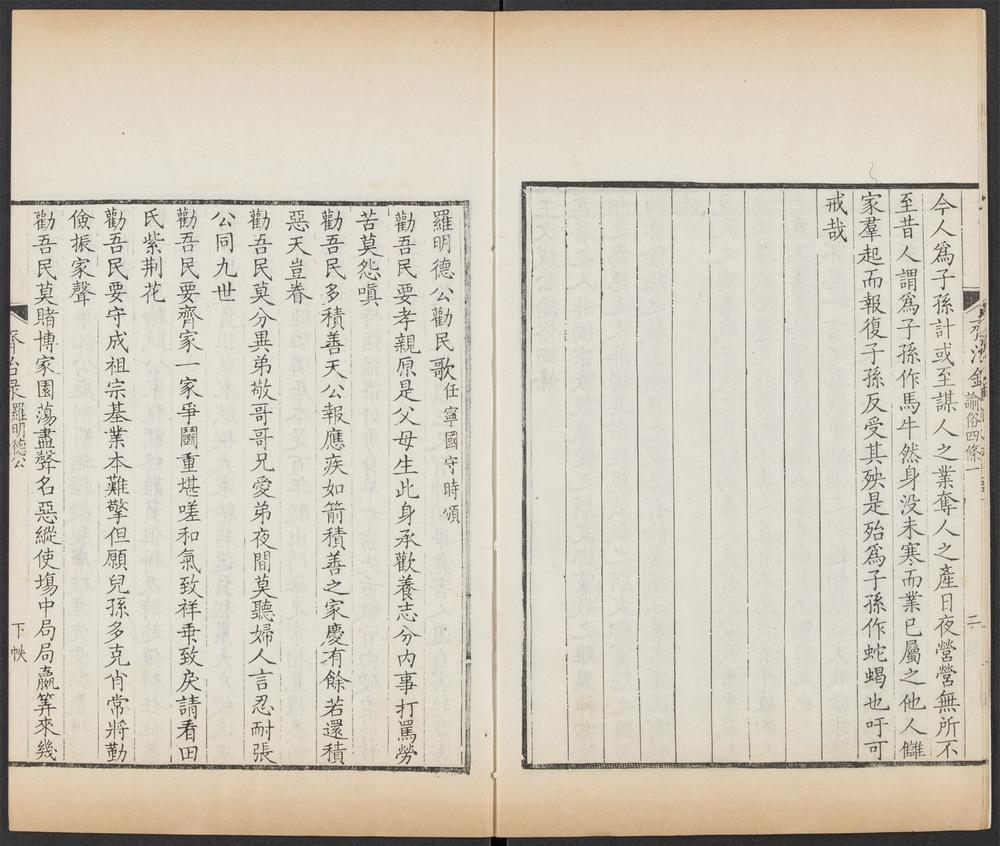 今人爲子孫計或至謀人之業奪人之產日夜營營無所不
至昔人謂爲子孫作馬牛然身没未寒而業已屬之他人讎
家羣起而報復子孫反受其殃是殆爲子孫作蛇蝎也吁可
戒哉
諭俗四條一
二
羅明德公勸民歌任寧國守時頒
勸吾民要孝親原是父母生此身承歡養志分內事打罵勞
苦莫怨嗔
勸吾民多積善天公報應疾如箭積善之家慶有餘若還積
惡天豈眷
勸吾民莫分異弟敬哥哥兄愛弟夜間莫聽婦人言忍耐張
公同九世
勸吾民要齊家一家爭鬭重堪嗟和氣致祥乖致戾請看田
氏紫荆花
勸吾民要守成祖宗基業本難擎但願兒孫多克肖常將勤
儉振家聲
勸吾民莫賭博家園蕩盡聲名惡縱使塲中局局贏筭來幾
羅明德公
下帙